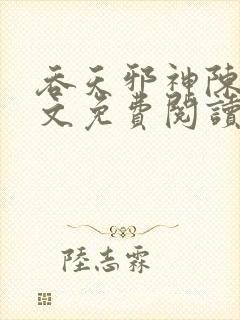 吞天邪神陳
文免費閱讀
陸志霖